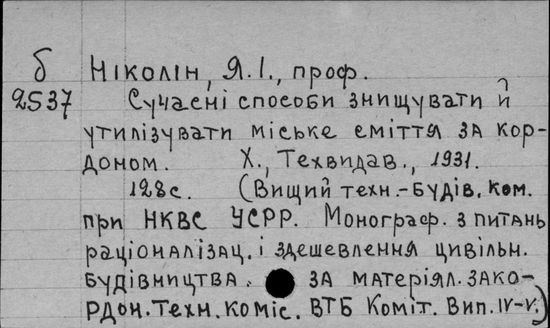 б Ніколін, Я.І., проф.
2537 Сучасні способи знищувати й
утилізувати міське сміття за кор-
доном. Х., Техвидав., 1931.
128с. (Вищий техн.-будів. ком.
при НКВС УСРР. Монограф. з питань
раціоналізац. і здешевлення цивільн.
будівництва. за матеріял. зако-
рдон. техн. коміс. ВТБ Коміт. Вип. IV-V.)